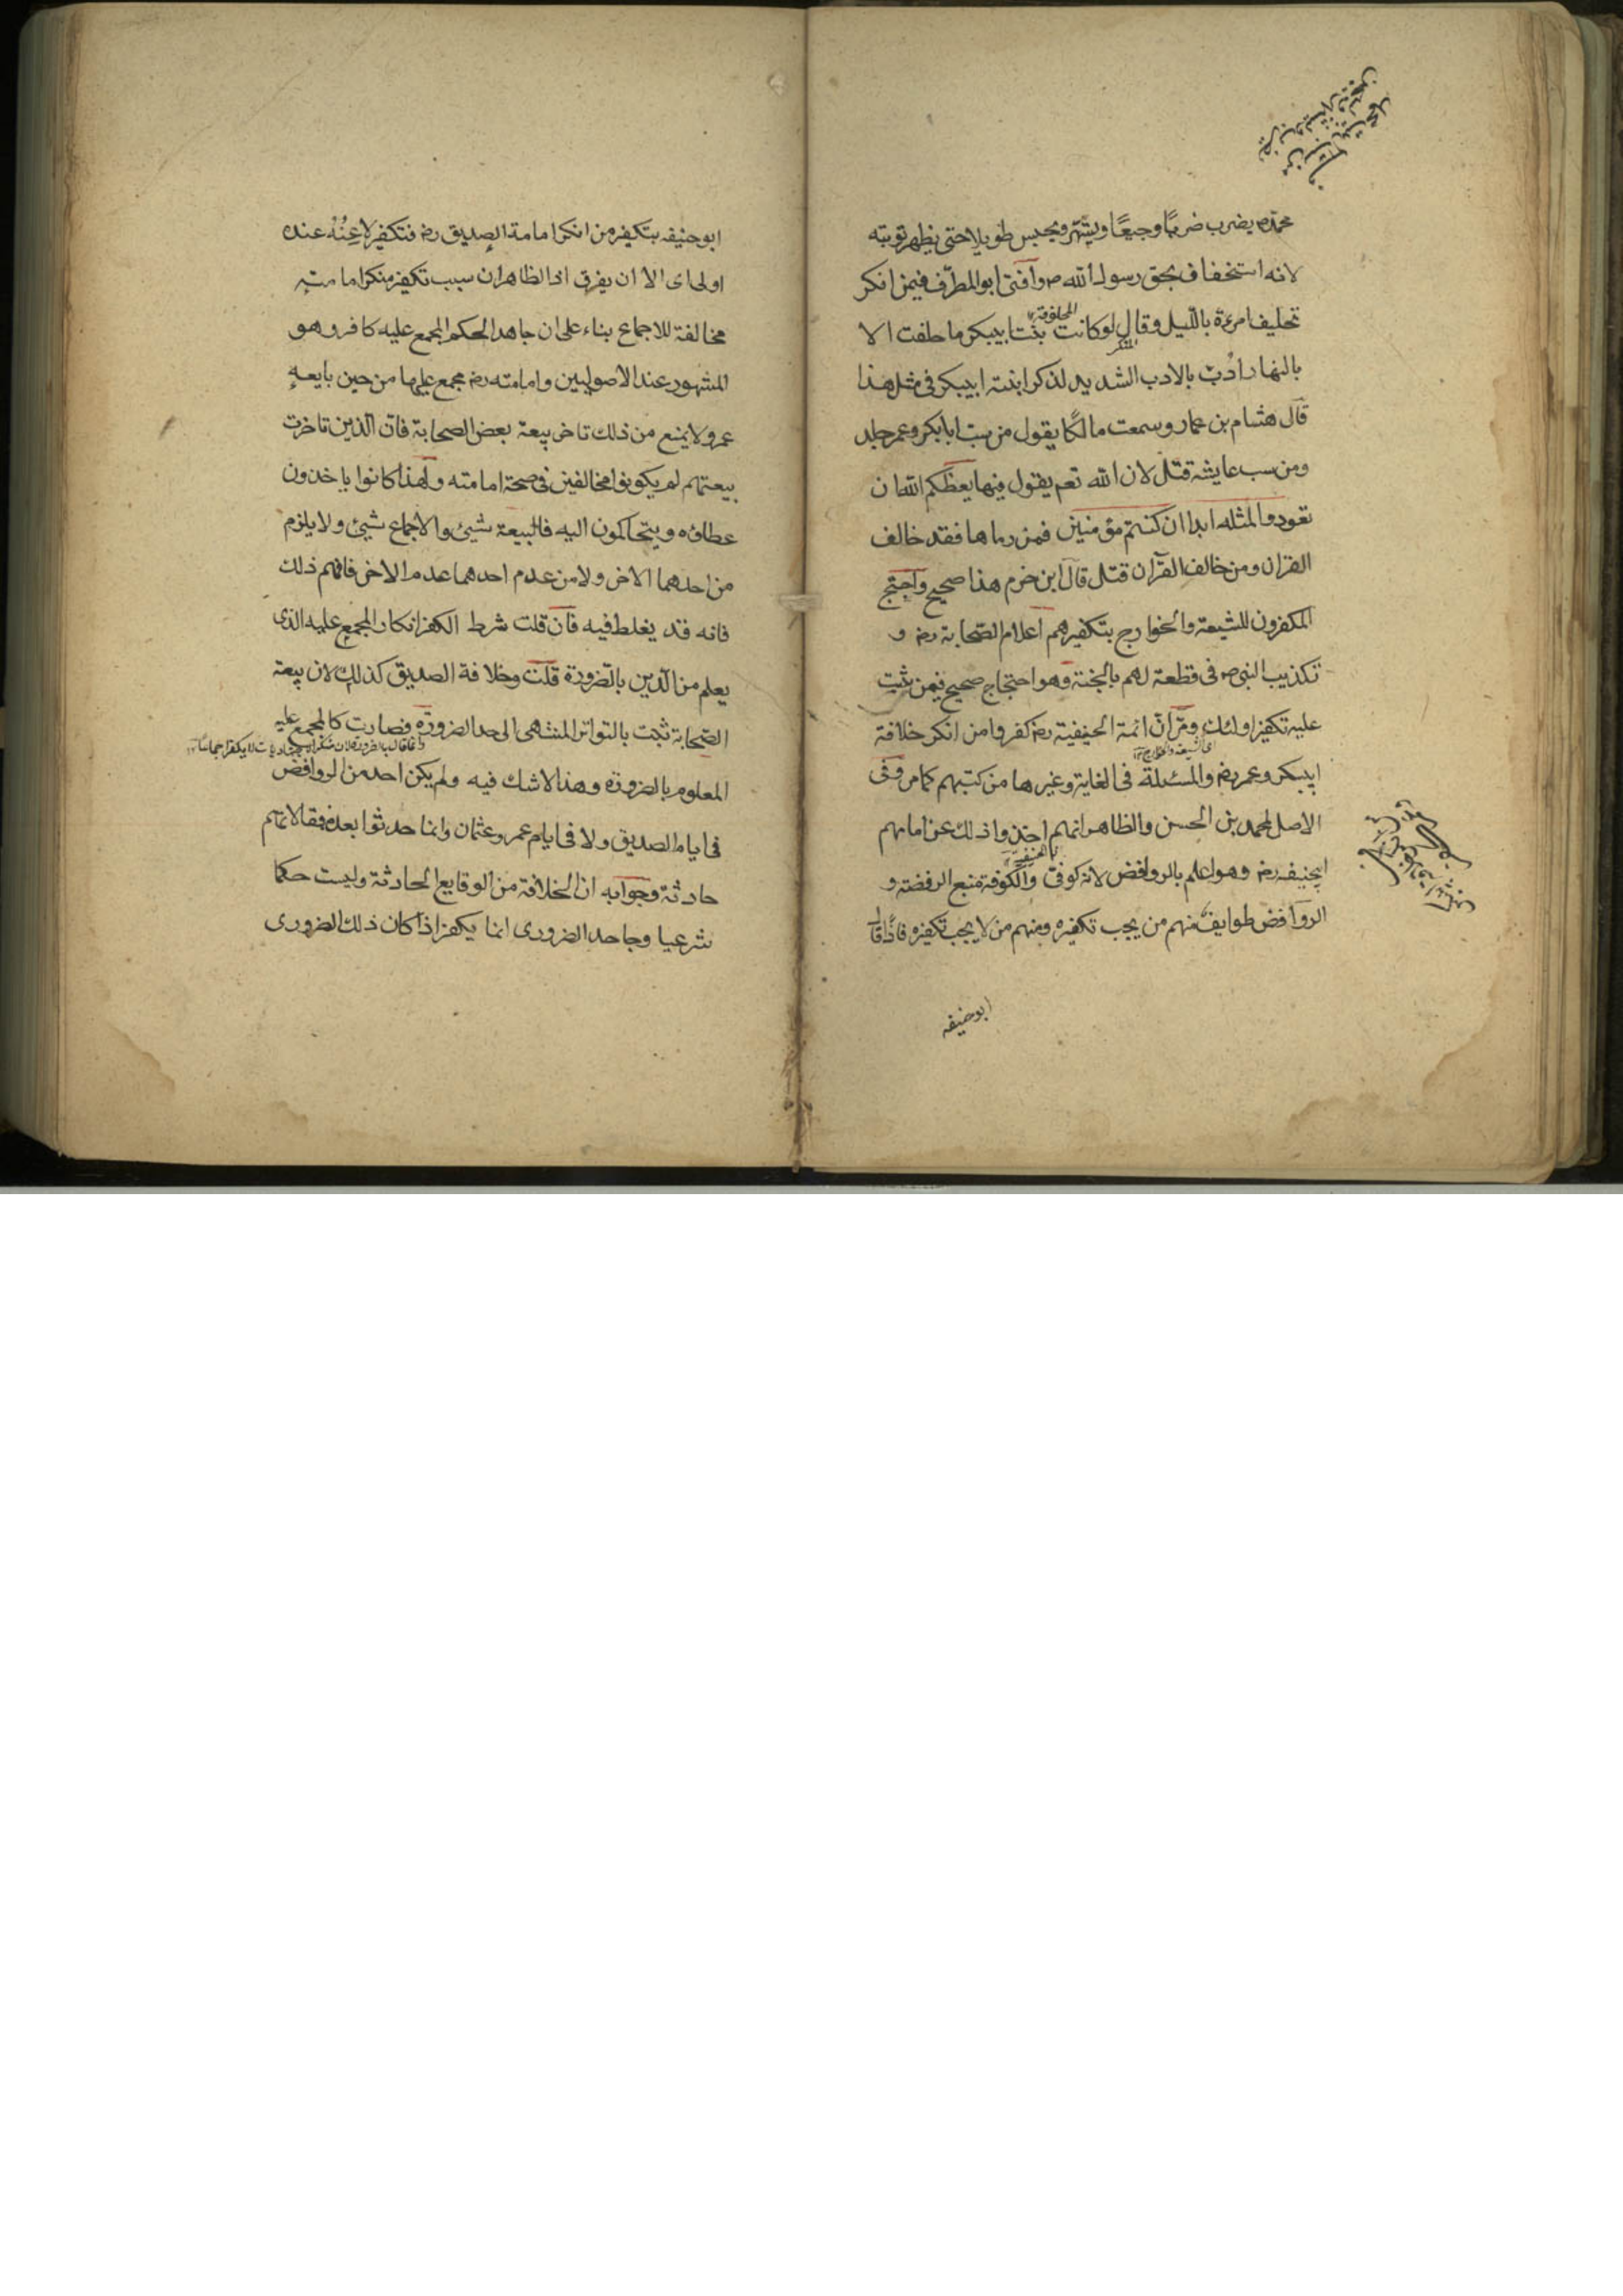 محمد ص يضرب ضربًا وجيعًا ويشهر ويحبس طويلا حتى يظهر توبته
لانه استخفاف بحق رسول الله ص وافتى ابو المطرّف فيمن انكر
تحليف امرءة باللّيل وقال لو كانت بنت ابيبكر ما حلفت الا
المحلوفة
المنكر
بالنهار ادّب بالادب الشديد لذكر ابنة ابيبكر فى مثل هذا
قال هشام بن عمار وسمعت مالكًا يقول من سب ابا بكر وعمر جلد
ومن سب عايشة قتل لان الله تعم يقول فيها يعظكم الله ان
تعودوا لمثله ابدا ان كنتم مؤمنين فمن رماها فقد خالف
القران ومن خالف القرآن قتل قال ابن حزم هذا صحيح واحتج
المكفرون للشيعة والخوارج بتكفيرهم اعلام الصّحابة رض و
تكذيب النبى ص فى قطعة لهم بالجنة وهو احتجاج صحيح فيمن ثبت
عليه تكفير اولئك ومرّ ان ائمة الحنيفية رض كفروا من انكر خلافة
اى الشيعة والخوارج ١٢
ابيبكر وعمر رض والمسئلة فى الغاية وغيرها من كتبهم كما مر وفى
الاصل لمحمد بن الحسن والظاهر انهم اخذوا ذلك عن امامهم
ابيحنيفه رض وهو اعلم بالروافض لانه كوفىّ والكوفة منبع الرفضة و
الروافض طوايف منهم من يجب تكفيره ومنهم من لا يجب تكفيره فاذا قال
ابو حنيفه
ابو حنيفه بتكفير من انكر امامة الصديق رض فتكفير لاعِنُهْ عنده
اولى اى الا ان يفرق اذ الظاهر ان سبب تكفير منكر امامته
مخالفة للاجماع بناء على ان جاهد الحكم المجمع عليه كافر وهو
المشهور عند الاصوليين وامامته رض مجمع عليها من حين بايعه
عمر ولا يمنع من ذلك تاخر بيعة بعض الصحابة فان الّذين تاخرت
بيعتهم لم يكونوا مخالفين فى صحة امامته ولهذا كانوا ياخذون
عطاؤه ويتحاكمون اليه فالبيعة شيئ والاجماع شيئ ولا يلزم
من احدهما الاخر ولا من عدم احدهما عدم الاخر فافهم ذلك
فانه قد يغلط فيه فان قلت شرط الكفر انكار المجمع عليه الذى
يعلم من الّدين بالضرورة قلت وخلافة الصديق كذلك لان بيعة
الصّحابة ثبت بالتواتر المنتهى الى حد الضرورة فصارت كالمجمع عليه
المعلوم بالضرورة وهذا لا شك فيه ولم يكن احد من الروافض
فى ايام الصديق ولا فى ايام عمر وعثمان وانما حدثوا بعده فمقالاتهم
حادثة وجوابه ان الخلافة من الوقايع الحادثة وليست حكما
شرعيا وجاحد الضرورى انما يكفر اذا كان ذلك الضرورى